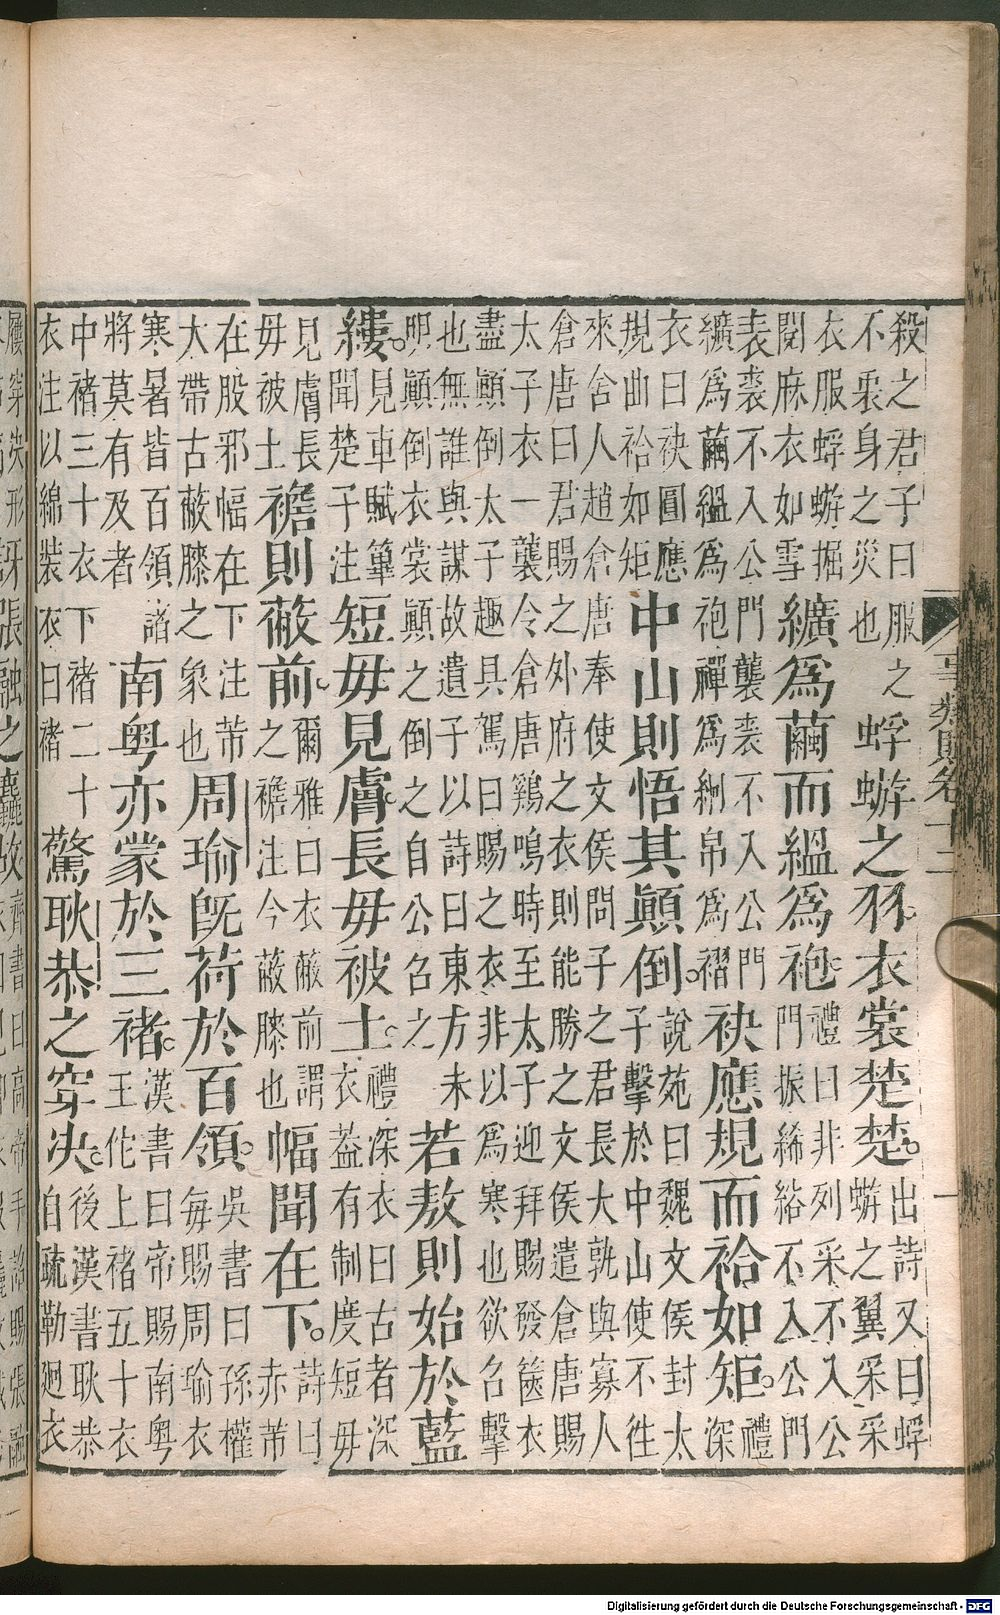 事類賦卷十二
殺之君子曰服之不衷身之災也蜉蝣之羽衣裳楚楚出詩又曰蜉蝣之翼采采
衣服蜉蝣掘閱麻衣如雪纊爲繭而緼爲袍禮曰非列采不入公門振絺綌不入公門
表裘不入公門襲裘不入公門纊爲繭緼爲袍襌爲絅帛爲褶袂應規而袷如矩禮深
衣曰袂圓應規曲袷如矩中山則悟其顛倒說苑曰魏文侯封太子擊於中山使不徃
來舍人趙倉唐奉使文侯問子之君長大孰與寡人倉唐曰君賜之外府之衣則能勝之文侯遣倉唐賜
太子衣一襲令倉唐鷄鳴時至太子迎拜賜發篋衣盡顛倒太子趣具駕曰賜之衣非以爲寒也欲召擊
也無誰與謀故遺子以詩曰東方未明顛倒衣裳顛之倒之自公召之若敖則始於藍
縷見車賦篳聞楚子注短毋見膚長毋被土禮深衣曰古者深衣葢有制度短毋
見膚長毋被土襜則蔽前爾雅曰衣蔽前謂之襜注今蔽膝也幅聞在下詩曰赤芾
在股邪幅在下注芾大帶古蔽膝之象也周瑜旣荷於百領吳書曰孫權每賜周瑜衣
寒暑皆百領諸將莫有及者南粤亦蒙於三褚漢書曰帝賜南粤王佗上褚五十衣
中褚三十衣下褚二十衣注以綿裝衣曰褚驚耿恭之穿决後漢書耿恭自疏勒迴衣
屨穿決形張融之麤故齊書曰高帝手詔賜張融
Digitalisierung gefördert durch die Deutsche Forschungsgemeinschaft - DFG